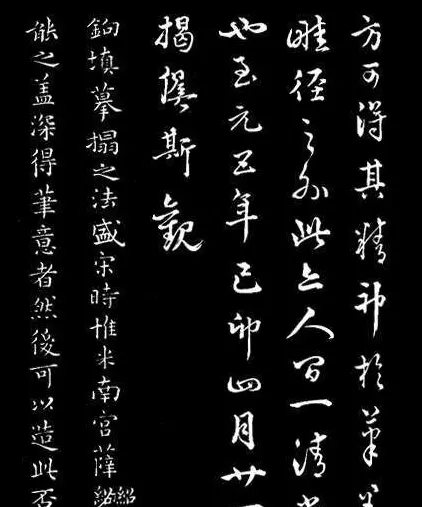 方可得其精神於筆
畦徑之外此亦人間一清
也至元五年己卯四月廿
揭傒斯觀
鉤填摹搨之法盛宋時惟米南宮薛紹
能之蓋深得筆意者然後可以造此否